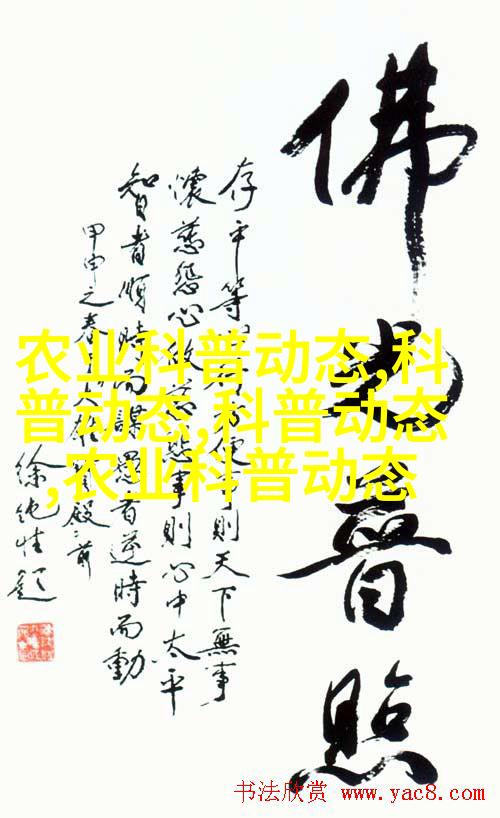 佛光普照
存平等方便則天下無事
懷慈悲心做慈悲事則心中太平
智者順時而謀愚者逆時而動
甲申之春大雄殿前
农业科普动态,科
普动态,科普动态
,农业科普动态
书法欣赏 www.yac8.com